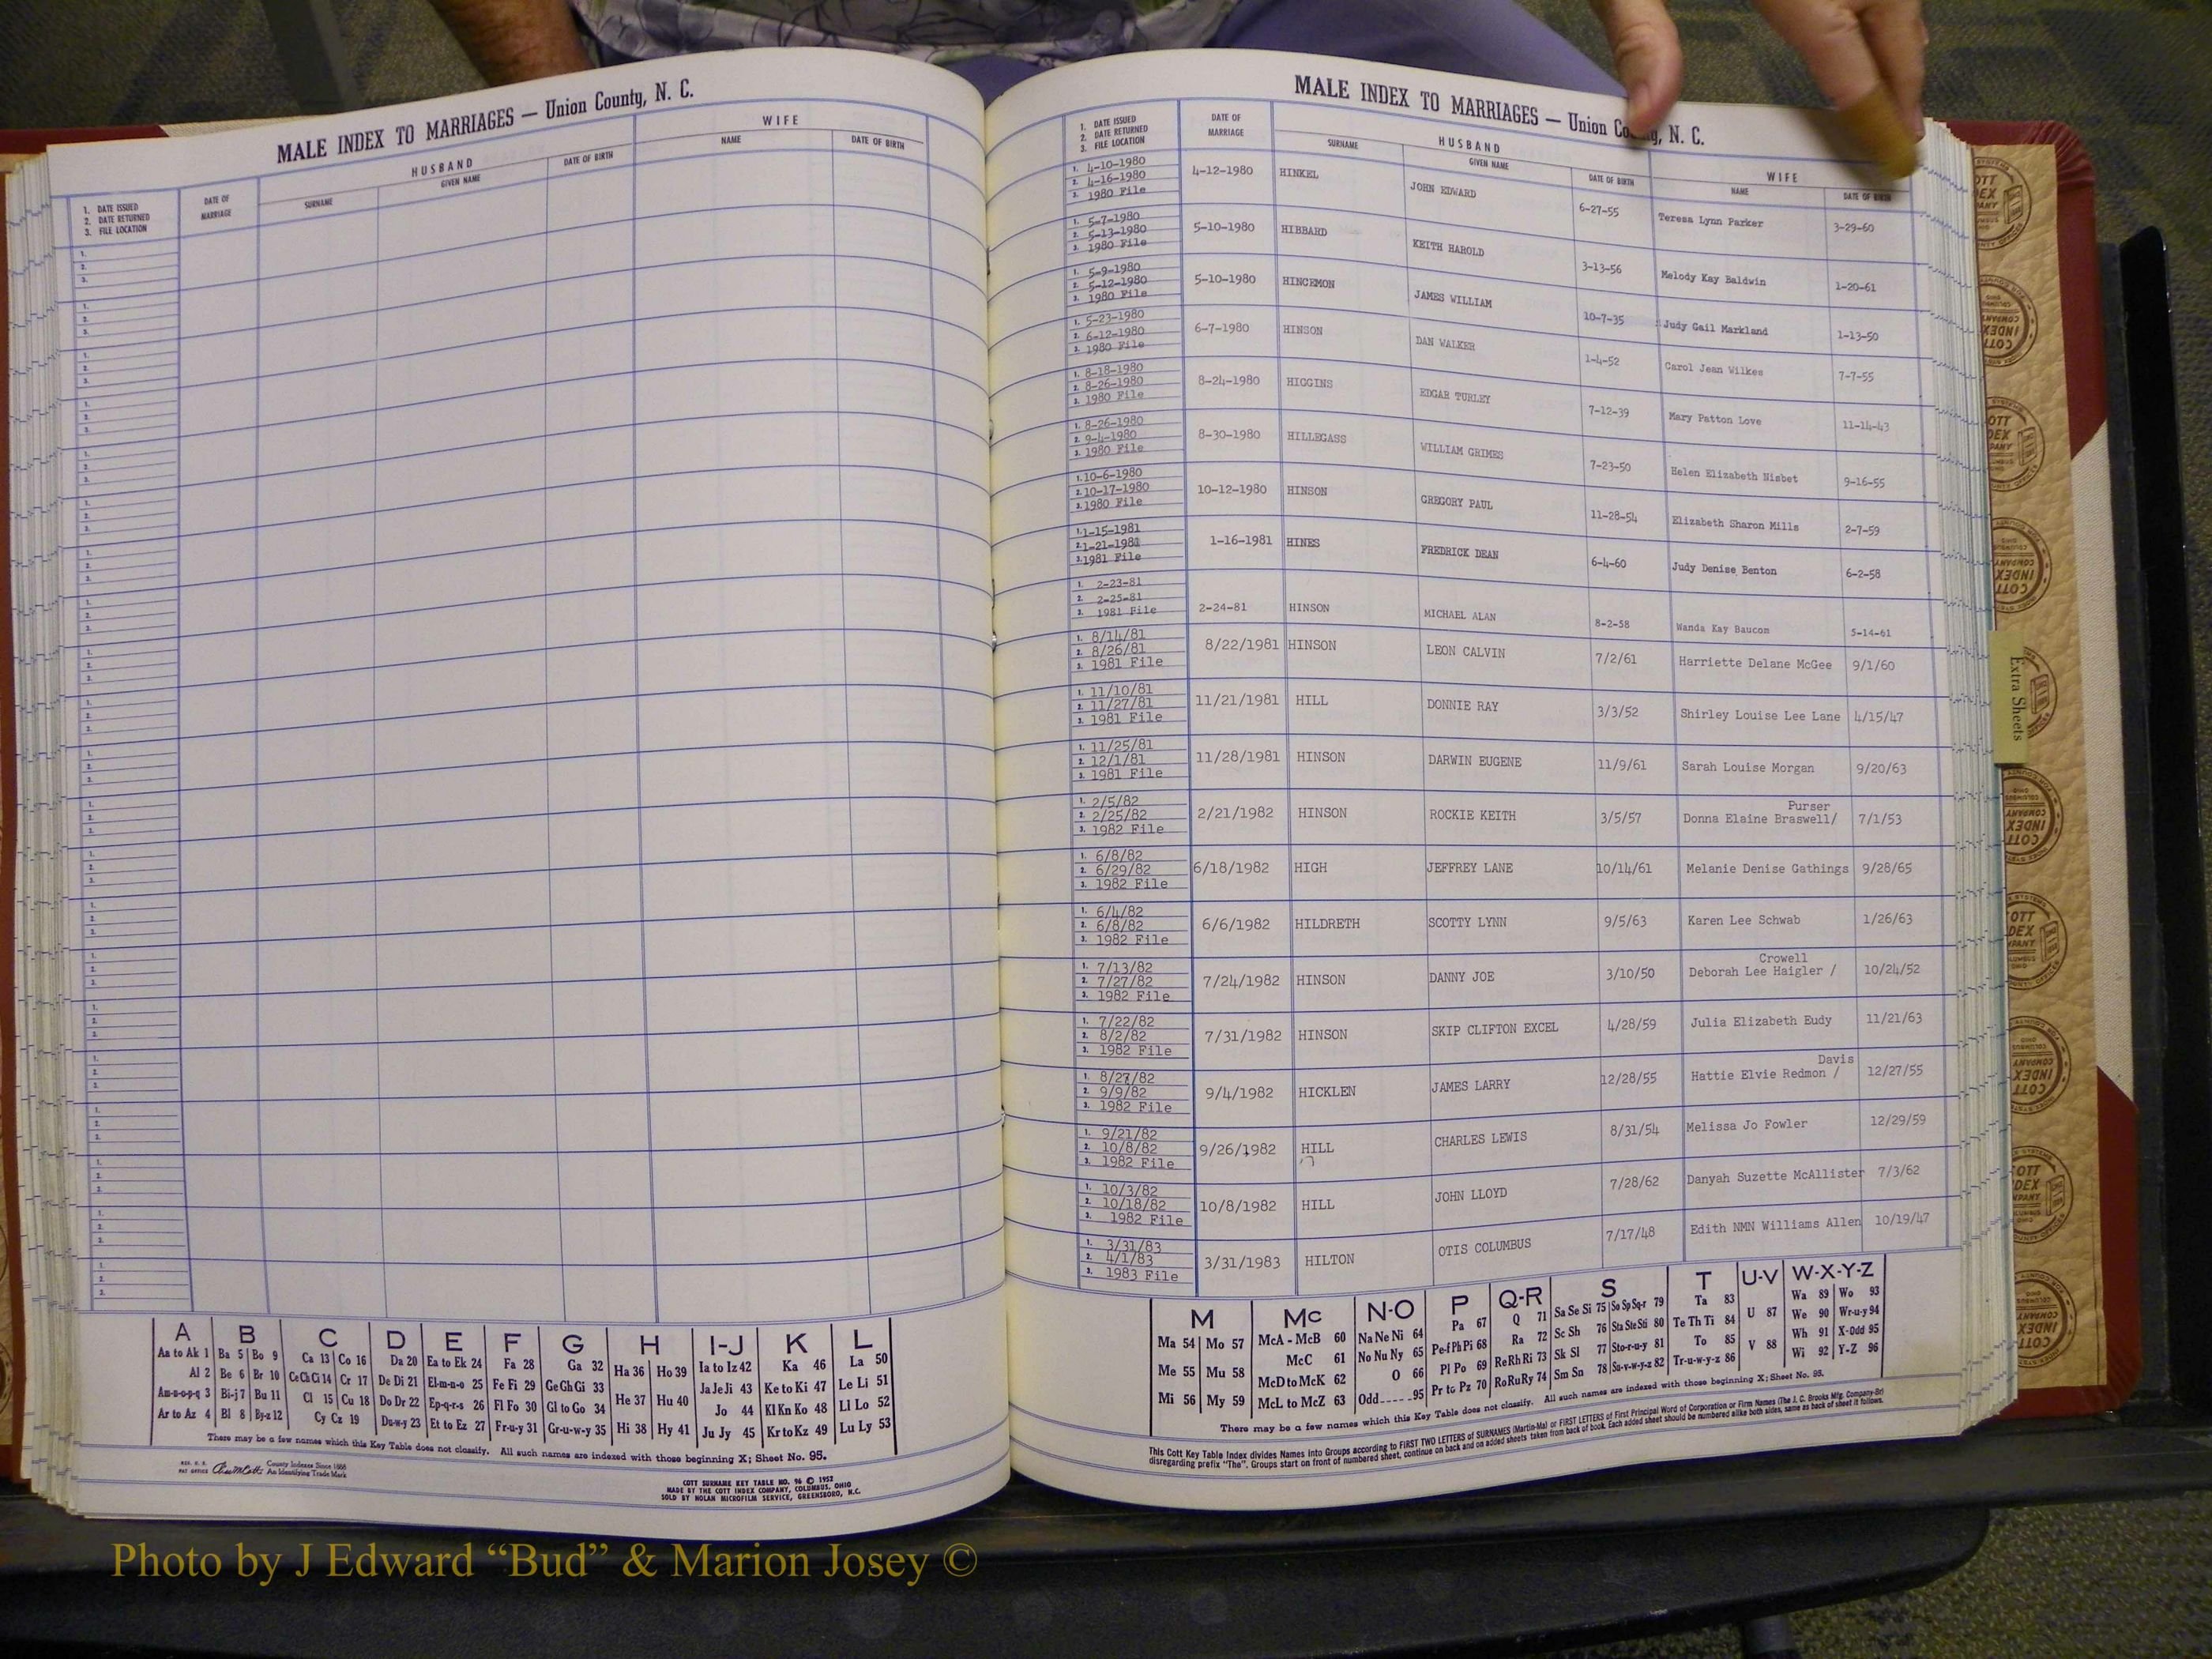 MALE INDEX TO MARRIAGES — Union County, N. C.
HUSBAND
WIFE
1. DATE ISSUED
2. DATE RETURNED
3. FILE LOCATION
DATE OF MARRIAGE
SURNAME
GIVEN NAME
DATE OF BIRTH
NAME
DATE OF BIRTH
A B C D E F G H I-J K L
Aa to Ak 1 Ba 5 Bo 9 Ca 13 Co 16 Da 20 Ea to Ek 24 Fa 28 Ga 32 Ha 36 Ho 39 Ia to Iz 42 Ka 46 La 50
Al 2 Be 6 Br 10 Ce Ch Ci 14 Cr 17 De Di 21 El-m-n-o 25 Fe Fi 29 Ge Gh Gi 33 He 37 Hu 40 Ja Je Ji 43 Ke to Ki 47 Le Li 51
Am-n-o-p-q 3 Bi-j 7 Bu 11 Cl 15 Cu 18 Do Dr 22 Ep-q-r-s 26 Fl Fo 30 Gl to Go 34 Hi 38 Hy 41 Jo 44 Kl Kn Ko 48 Ll Lo 52
Ar to Az 4 Bl 8 By-z 12 Cy Cz 19 Du-w-y 23 Et to Ez 27 Fr-u-y 31 Gr-u-w-y 35 Ju Jy 45 Kr to Kz 49 Lu Ly 53
There may be a few names which this Key Table does not classify. All such names are indexed with those beginning X; Sheet No. 95.
County Indexes Since 1888
An Identifying Trade Mark
COTT SURNAME KEY TABLE NO. 96 © 1952
MADE BY THE COTT INDEX COMPANY, COLUMBUS, OHIO
SOLD BY NOLAN MICROFILM SERVICE, GREENSBORO, N.C.
MALE INDEX TO MARRIAGES — Union County, N. C.
1. DATE ISSUED
2. DATE RETURNED
3. FILE LOCATION
DATE OF MARRIAGE
HUSBAND
SURNAME
GIVEN NAME
DATE OF BIRTH
WIFE
NAME
DATE OF BIRTH
1. 4-10-1980
2. 4-16-1980
3. 1980 File
4-12-1980 HINKEL JOHN EDWARD 6-27-55 Teresa Lynn Parker 3-29-60
1. 5-7-1980
2. 5-13-1980
3. 1980 File
5-10-1980 HIBBARD KEITH HAROLD 3-13-56 Melody Kay Baldwin 1-20-61
1. 5-9-1980
2. 5-12-1980
3. 1980 File
5-10-1980 HINCEMON JAMES WILLIAM 10-7-35 Judy Gail Markland 1-13-50
1. 5-23-1980
2. 6-12-1980
3. 1980 File
6-7-1980 HINSON DAN WALKER 1-4-52 Carol Jean Wilkes 7-7-55
1. 8-18-1980
2. 8-26-1980
3. 1980 File
8-24-1980 HIGGINS EDGAR TURLEY 7-12-39 Mary Patton Love 11-14-43
1. 8-26-1980
2. 9-4-1980
3. 1980 File
8-30-1980 HILLEGASS WILLIAM GRIMES 7-23-50 Helen Elizabeth Nisbet 9-16-55
1. 10-6-1980
2. 10-17-1980
3. 1980 File
10-12-1980 HINSON GREGORY PAUL 11-28-54 Elizabeth Sharon Mills 2-7-59
1. 1-15-1981
2. 1-21-1981
3. 1981 File
1-16-1981 HINES FREDRICK DEAN 6-4-60 Judy Denise Benton 6-2-58
1. 2-23-81
2. 2-25-81
3. 1981 File
2-24-81 HINSON MICHAEL ALAN 8-2-58 Wanda Kay Baucom 5-14-61
1. 8/14/81
2. 8/26/81
3. 1981 File
8/22/1981 HINSON LEON CALVIN 7/2/61 Harriette Delane McGee 9/1/60
1. 11/10/81
2. 11/27/81
3. 1981 File
11/21/1981 HILL DONNIE RAY 3/3/52 Shirley Louise Lee Lane 4/15/47
1. 11/25/81
2. 12/1/81
3. 1981 File
11/28/1981 HINSON DARWIN EUGENE 11/9/61 Sarah Louise Morgan 9/20/63
1. 2/5/82
2. 2/25/82
3. 1982 File
Purser
2/21/1982 HINSON ROCKIE KEITH 3/5/57 Donna Elaine Braswell/ 7/1/53
1. 6/8/82
2. 6/29/82
3. 1982 File
6/18/1982 HIGH JEFFREY LANE 10/14/61 Melanie Denise Gathings 9/28/65
1. 6/4/82
2. 6/8/82
3. 1982 File
6/6/1982 HILDRETH SCOTTY LYNN 9/5/63 Karen Lee Schwab 1/26/63
1. 7/13/82
2. 7/27/82
3. 1982 File
Crowell
7/24/1982 HINSON DANNY JOE 3/10/50 Deborah Lee Haigler / 10/24/52
1. 7/22/82
2. 8/2/82
3. 1982 File
7/31/1982 HINSON SKIP CLIFTON EXCEL 4/28/59 Julia Elizabeth Eudy 11/21/63
1. 8/27/82
2. 9/9/82
3. 1982 File
Davis
9/4/1982 HICKLEN JAMES LARRY 12/28/55 Hattie Elvie Redmon / 12/27/55
1. 9/21/82
2. 10/8/82
3. 1982 File
9/26/1982 HILL CHARLES LEWIS 8/31/54 Melissa Jo Fowler 12/29/59
1. 10/3/82
2. 10/18/82
3. 1982 File
10/8/1982 HILL JOHN LLOYD 7/28/62 Danyah Suzette McAllister 7/3/62
1. 3/31/83
2. 4/1/83
3. 1983 File
3/31/1983 HILTON OTIS COLUMBUS 7/17/48 Edith NMN Williams Allen 10/19/47
M Mc N-O P Q-R S T U-V W-X-Y-Z
Ma 54 Mo 57 McA - McB 60 Na Ne Ni 64 Pa 67 Q 71 Sa Se Si 75 So Sp Sq-r 79 Ta 83 U 87 Wa 89 Wo 93
Me 55 Mu 58 McC 61 No Nu Ny 65 Pe-f Ph Pi 68 Ra 72 Sc Sh 76 Sta Ste Sti 80 Te Th Ti 84 V 88 We 90 Wr-u-y 94
Mi 56 My 59 McD to McK 62 O 66 Pl Po 69 Re Rh Ri 73 Sk Sl 77 Sto-r-u-y 81 To 85 Wh 91 X-Odd 95
McL to McZ 63 Odd 95 Pr to Pz 70 Ro Ru Ry 74 Sm Sn 78 Su-v-w-y-z 82 Tr-u-w-y-z 86 Wi 92 Y-Z 96
There may be a few names which this Key Table does not classify. All such names are indexed with those beginning X; Sheet No. 95.
This Cott Key Table Index divides Names into Groups according to FIRST TWO LETTERS of SURNAMES (Martin-Ma) or FIRST LETTERS of First Principal Word of Corporation or Firm Names (The J. C. Brooks Mfg. Company-Br)
disregarding prefix "The". Groups start on front of numbered sheet, continue on back and on added sheets taken from back of book. Each added sheet should be numbered alike both sides, same as back of sheet it follows.
Extra Sheets
Photo by J Edward “Bud” & Marion Josey ©